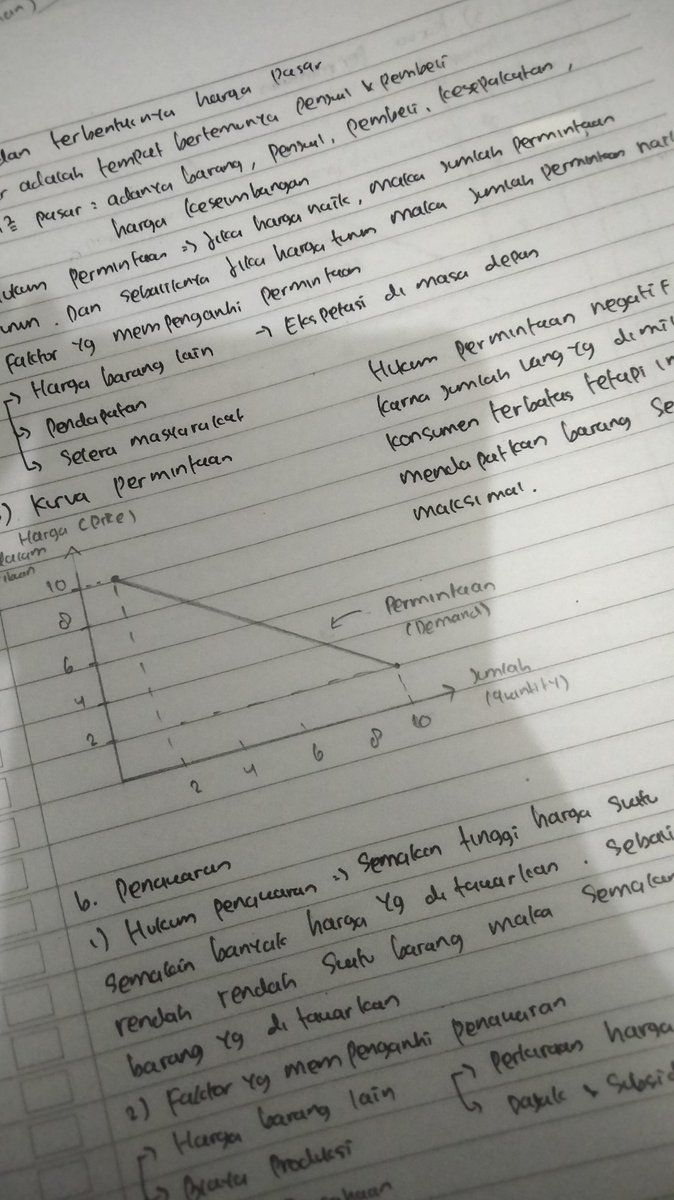 dan terbentuknya harga pasar
adalah tempat bertemunya penjual & pembeli
pasar : adanya barang, penjual, pembeli, kesepakatan,
harga keseimbangan
Hukum Permintaan => Jika harga naik, maka jumlah permintaan
turun. Dan sebaliknya jika harga turun maka jumlah permintaan naik
Faktor yg mempengaruhi permintaan
→ Harga barang lain → Ekspetasi di masa depan
→ Pendapatan
→ Selera masyarakat
) Kurva permintaan
Hukum permintaan negatif
karna jumlah uang yg dimil
konsumen terbatas tetapi in
mendapatkan barang se
maksimal.
Harga (Price)
dalam
10
8
6
4
2
Permintaan
(Demand)
Jumlah
(Quantity)
2 4 6 8 10
b. Penawaran
1) Hukum penawaran => Semakin tinggi harga suatu
semakin banyak harga yg di tawarkan. Sebali
rendah rendah suatu barang maka semakin
barang yg di tawarkan
2) Faktor yg mempengaruhi penawaran
→ Harga barang lain → Perkiraan harga
→ Biaya Produksi → Pajak & Subsid